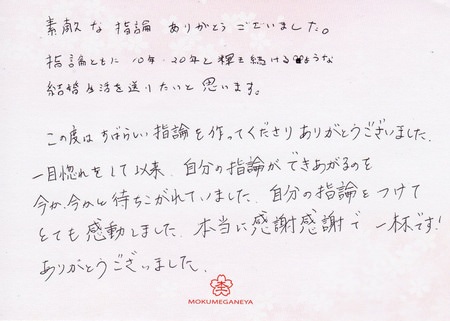 素敵な指論ありがとうございました。
指論ともに10年・20年と輝き続けるような
結婚生活を送りたいと思います。
この度はすばらしい指論を作ってくださりありがとうございました。
一目惚れをして以来、自分の指論ができあがるのを
今か、今かと待ちこがれていました。自分の指論をつけて
とても感動しました。本当に感謝感謝で一杯です!
ありがとうございました。
MOKUMEGANEYA